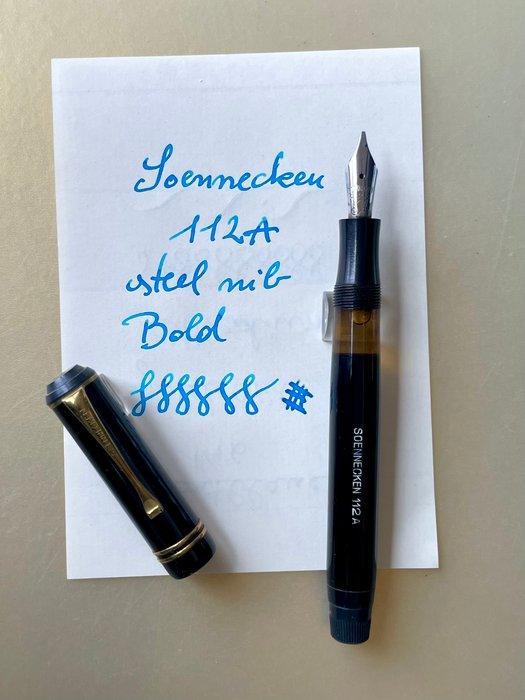 Soennecken
112A
steel nib
Bold
SOENNECKEN 112 A